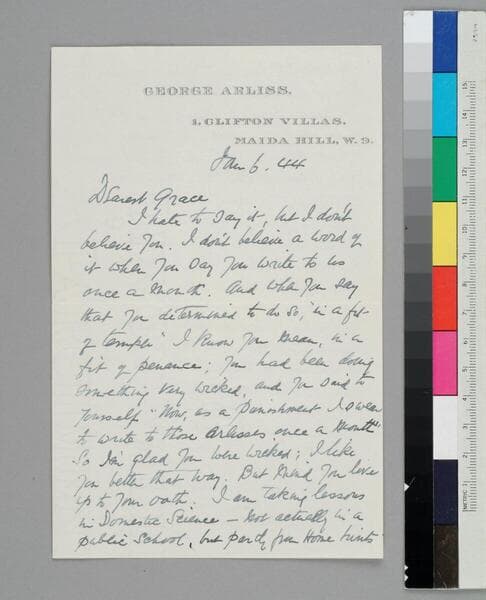 GEORGE ARLISS.
1. CLIFTON VILLAS.
MAIDA HILL, W. 9.
Jan 6. 44
Dearest Grace
I hate to say it, but I don't
believe you. I don't believe a word of
it when you say you write to us
once a month. And when you say
that you determined to do so, "in a fit
of temper" I know you mean, in a
fit of penance; you had been doing
something very wicked, and you said to
yourself "Now, as a punishment I swear
to write to those Arlisses once a month"
So I'm glad you were wicked; I like
you better that way. But mind you live
up to your oath. I am taking lessons
in Domestic Science — not actually in a
public School, but partly from Home hints